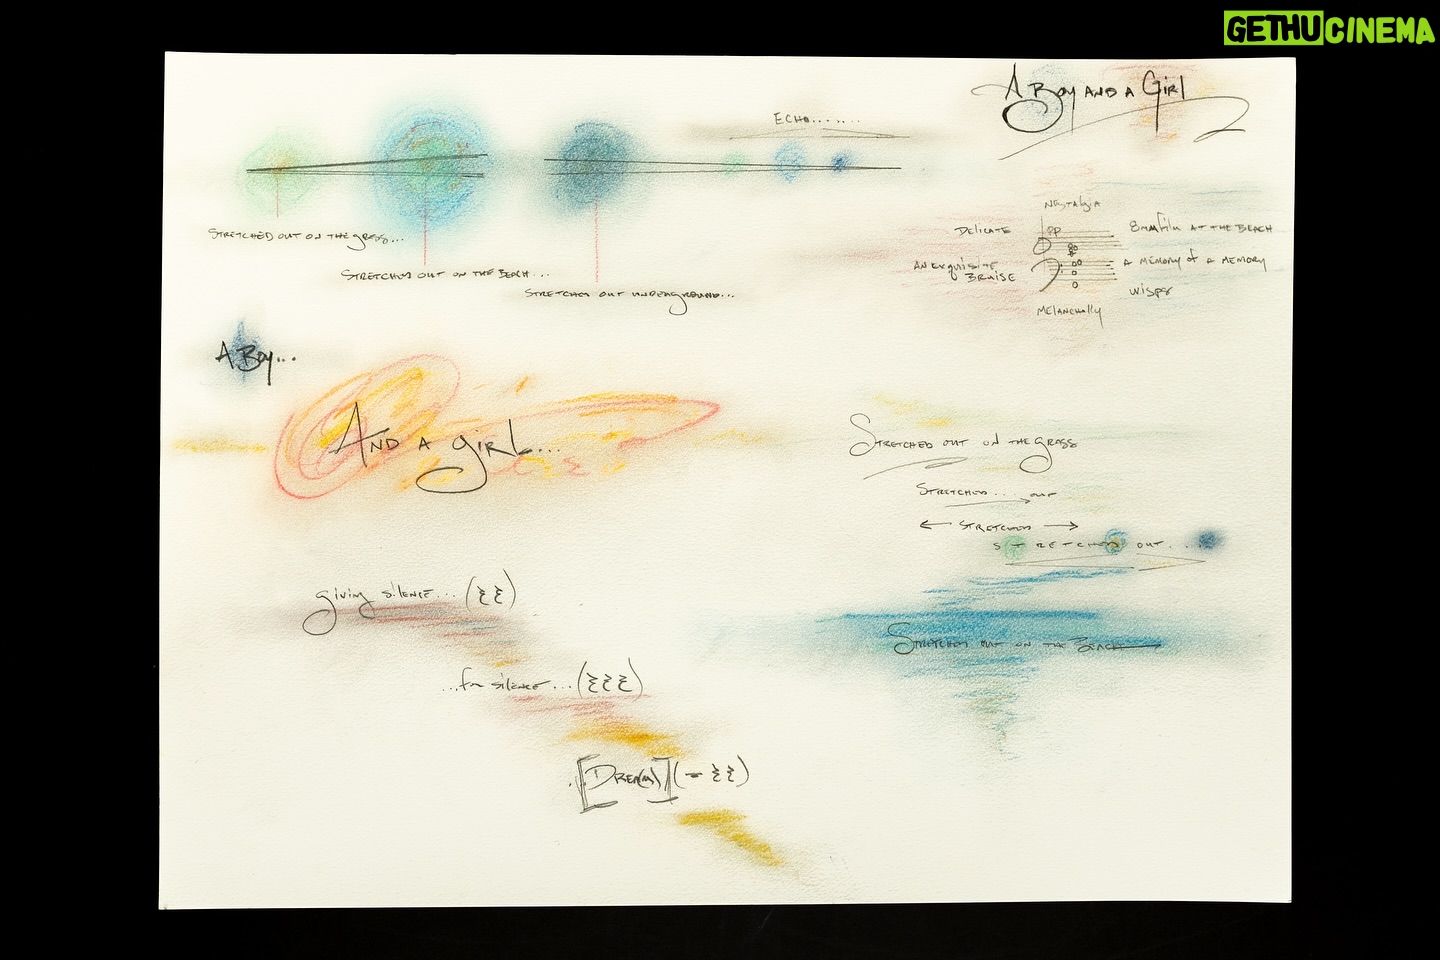 GETHUCINEMA
A Boy AND A GIRL
ECHO........
STRETCHED OUT ON THE grass...
STRETCHED OUT ON THE BEACH...
STRETCHED OUT UNDERGROUND...
NOSTALGIA
DELICATE
pp
8mm film AT THE BEACH
AN EXQUISITE
BRUISE
A MEMORY of A MEMORY
WISPS
MELANCHOLLY
A Boy...
AND A girl...
STRETCHED OUT ON THE grass
STRETCHED... OUT
STRETCHED
STRETCHED OUT...
giving silence...
...for silence...
[DREA(M)]
STRETCHED OUT ON THE BEACH